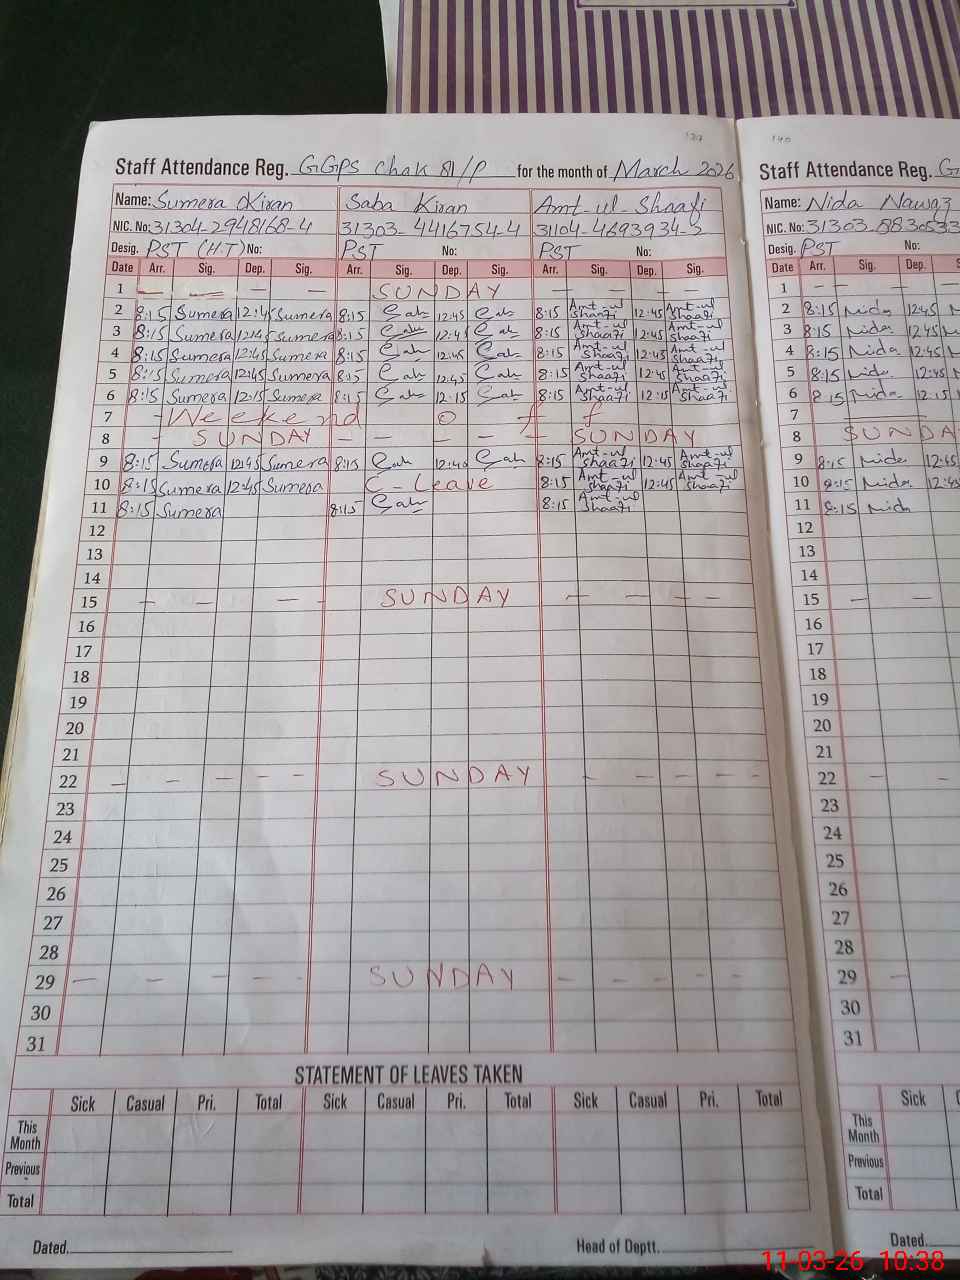 127
140
Staff Attendance Reg. GGPS Chak 81/P for the month of March 2026
Name: Sumera Kiran Saba Kiran Amt-ul-Shaafi
NIC. No: 31304-2948168-4 31303-4416754-4 31104-4693934-2
Desig. PST (H.T) No: PST No: PST No:
Date Arr. Sig. Dep. Sig. Arr. Sig. Dep. Sig. Arr. Sig. Dep. Sig.
1 — — — — SUNDAY — — — —
2 8:15 Sumera 12:45 Sumera 8:15 12:45 8:15 Amt-ul Shaafi 12:45 Amt-ul Shaafi
3 8:15 Sumera 12:45 Sumera 8:15 12:45 8:15 Amt-ul Shaafi 12:45 Amt-ul Shaafi
4 8:15 Sumera 12:45 Sumera 8:15 12:45 8:15 Amt-ul Shaafi 12:45 Amt-ul Shaafi
5 8:15 Sumera 12:45 Sumera 8:15 12:45 8:15 Amt-ul Shaafi 12:45 Amt-ul Shaafi
6 8:15 Sumera 12:15 Sumera 8:15 12:15 8:15 Amt-ul Shaafi 12:15 Amt-ul Shaafi
7 - Weekend off
8 - SUNDAY — — — — — SUNDAY
9 8:15 Sumera 12:45 Sumera 8:15 8:15 Amt-ul Shaafi 12:45 Amt-ul Shaafi
10 8:15 Sumera 12:45 Sumera C-Leave 8:15 Amt-ul Shaafi 12:45 Amt-ul Shaafi
11 8:15 Sumera 8:15 8:15 Amt-ul Shaafi
12
13
14
15 — — — — SUNDAY — — — —
16
17
18
19
20
21
22 — — — — — SUNDAY — — — — —
23
24
25
26
27
28
29 — — — — — SUNDAY — — — — —
30
31
STATEMENT OF LEAVES TAKEN
Sick Casual Pri. Total Sick Casual Pri. Total Sick Casual Pri. Total
This Month
Previous
Total
Dated. Head of Deptt.
Staff Attendance Reg. G
Name: Nida Nawaz
NIC. No: 31303-
Desig. PST No:
Date Arr. Sig. Dep.
1 — — — —
2 8:15 Nida 12:45
3 8:15 Nida 12:45
4 8:15 Nida 12:45
5 8:15 Nida 12:45
6 8:15 Nida 12:15
7
8 SUNDA
9 8:15 Nida 12:45
10 8:15 Nida 12:45
11 8:15 Nida
12
13
14
15 — —
16
17
18
19
20
21
22 — —
23
24
25
26
27
28
29 —
30
31
Sick
This Month
Previous
Total
Dated.
11-03-26 10:38